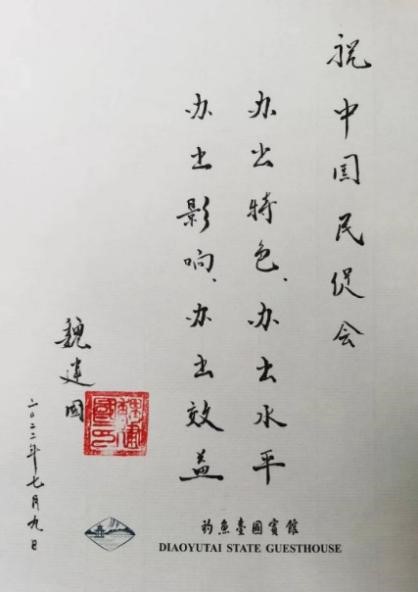 祝中国民促会
办出特色、办出水平
办出影响、办出效益
魏建国
二〇二二年七月九日
魏建國印
釣魚臺國賓館
DIAOYUTAI STATE GUESTHOUSE